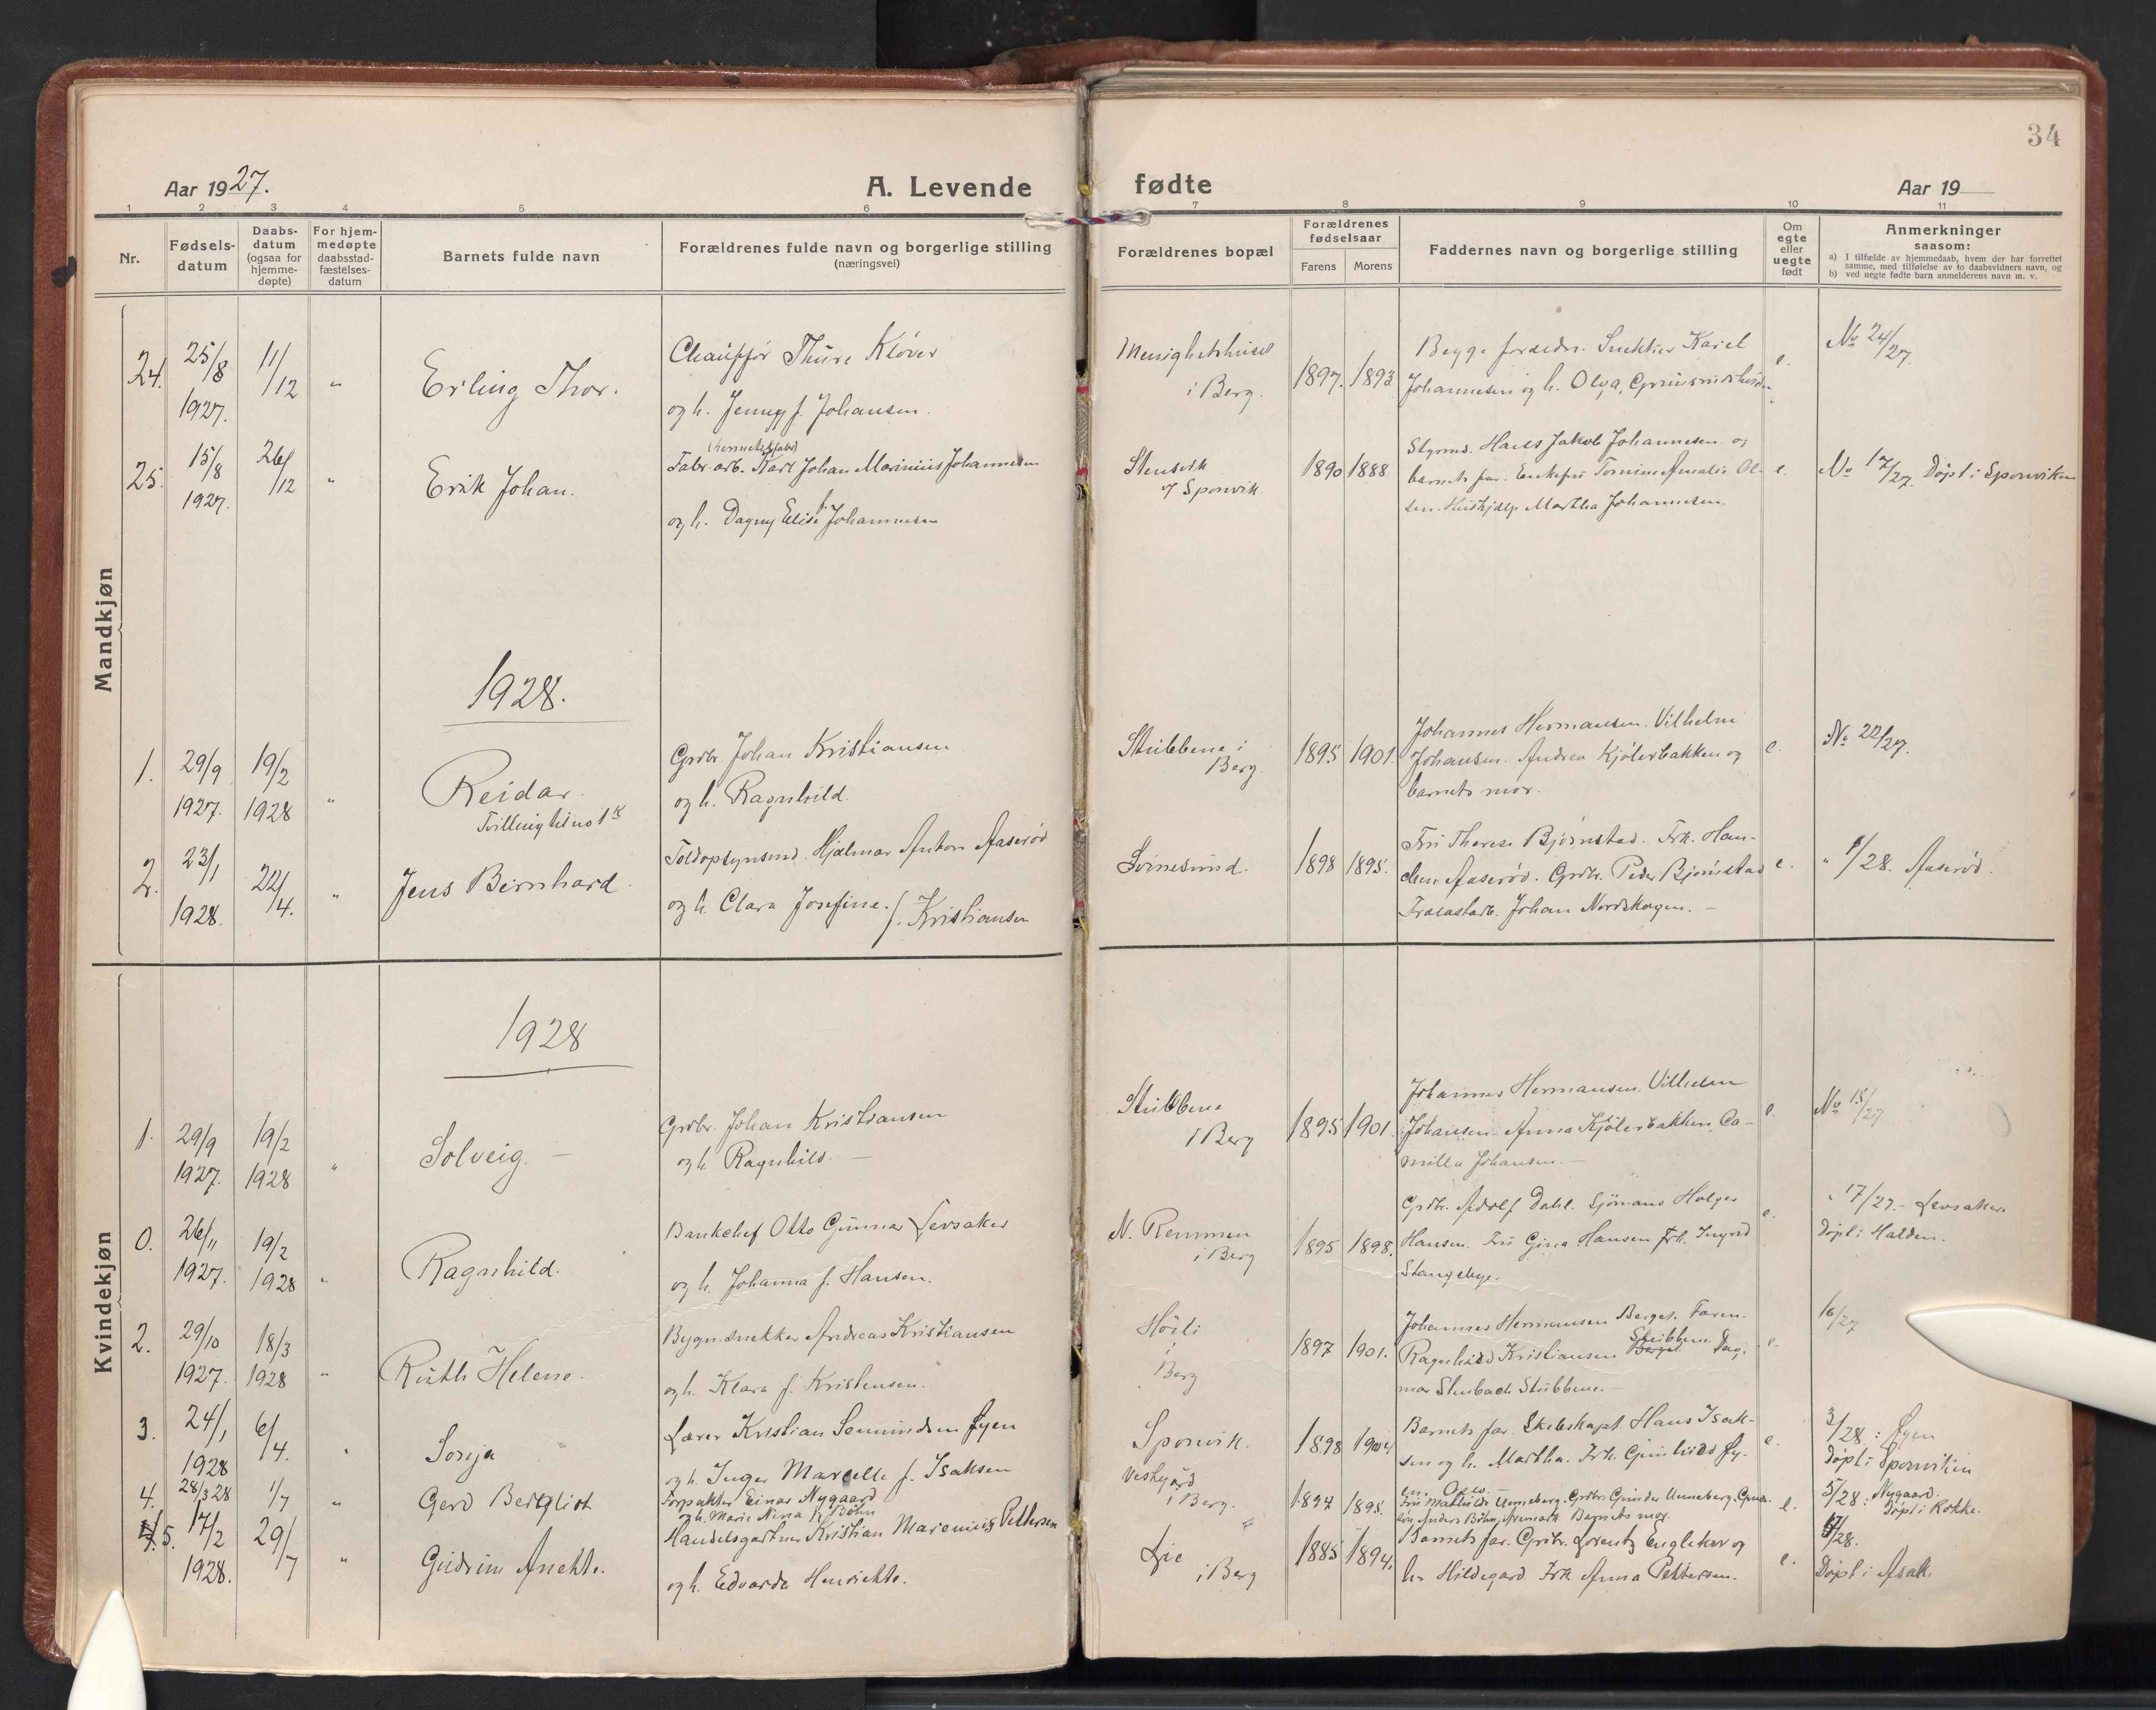 34
Aar 1927.
A. Levende
fødte
Aar 19
1 2 3 4 5 6 7 8 9 10 11
Nr.
Fødsels-
datum
Daabs-
datum
(ogsaa for
hjemme-
døpte)
For hjem-
medøpte
daabsstad-
fæstelses-
datum
Barnets fulde navn
Forældrenes fulde navn og borgerlige stilling
(næringsvei)
Forældrenes bopæl
Forældrenes
fødselsaar
Farens Morens
Faddernes navn og borgerlige stilling
Om
egte
eller
uegte
født
Anmerkninger
saasom:
a) I tilfælde av hjemmedaab, hvem der har forrettet
samme, med tilføielse av to daabsvidners navn, og
b) ved uegte fødte barn anmelderens navn m. v.
Mandkjøn
24. 25/8 1927. 11/12 "
Erling Thor.
Chauffør Thure Kløver
og h. Jenny f. Johansen.
Menighetshuset
i Berg.
1897. 1893
Begge foreldr. Snekker Karel
Johannesen og h. Olga,
e.
No 24/27.
25. 15/8 1927. 26/12 "
Erik Johan.
Fabr. arb. Karl Johan Marinius Johannesen
og h. Dagny Elise f. Johannesen
Stenseth
y Sponvik.
1890 1888
Styrmd. Hans Jakob Johannesen og
barnets far. Enkefru Tomine Amalie Ol-
sen. Hushjælp Martha Johannesen.
e.
No 17/27. Døpt i Sponviken
1928.
1. 29/9 1927. 19/2 1928 "
Reidar.
Tvilling til no 1 K
Grdbr. Johan Kristiansen
og h. Ragnhild.
Stubbene i
Berg.
1895 1901.
Johannes Hermansen. Vilhelm
Johansen. Andrea Kjølerbakken og
barnets mor.
e.
No 22/27.
2. 23/1 1928. 22/4. "
Jens Bernhard.
Toldopsynsmd. Hjalmar Anton Aaserød
og h. Clara Josefine. f. Kristiansen
Svinesund.
1898 1895.
Fru Therese Bjørnstad. Frk. Han-
chen Aaserød. Grdbr. Peder Bjørnstad
Johan Nordskogen. –
e.
" 1/28. Aaserød.
Kvindekjøn
1928
1. 29/9 1927. 19/2 1928 "
Solveig. –
Grdbr. Johan Kristiansen
og h. Ragnhild. –
Stubbene
i Berg
1895 1901.
Johannes Hermansen. Vilhelm
Johansen. Anna Kjølerbakken. Ca-
milla Johansen. –
e.
No 15/27
0. 26/11 1927. 19/2 1928 "
Ragnhild.
Bankchef Otto Gunnar Levsaker
og h. Johanna f. Hansen.
N. Remmen
i Berg
1895 1898.
Grdbr. Adolf Dahl. Sjømand Holger
Hansen. Fru Gina Hansen Frk. Ingrid
Stangebye.
e.
" 17/27. – Levsaker.
Døpt i Halden.
2. 29/10 1927. 18/3 1928 "
Ruth Helene.
Bygn.snekker Andreas Kristiansen
og h. Klara f. Kristensen.
Høili
i
Berg
1897 1901.
Johannes Hermansen Berget. Faren.
Ragnhild Kristiansen Berget. Stubbene. Dag-
mar Stubbene. –
e.
16/27
3. 24/1 1928 6/4. "
Sonja
Lærer Kristian Øyen
og h. Inger Marcelle f. Isaksen
Sponvik.
1898 1904
Barnets far. Skibskapt. Hans Isak-
sen og h. Martha. Frk. Gunhild Øy-
en. Oslo –
e.
3/28: Øyen
Døpt i Sponviken
4. 28/3 28 1/7 "
Gerd Bergliot
Forpakter Einar Nygaard
og h. Marie Nina f. Bøhn
Vestgård
i Berg.
1894 1898.
Fru Mathilde Unneberg. Grdbr. Gunder Unneberg.
Anders Bøhn, Aremark Barnets mor.
e.
5/28: Nygaard.
Døpt i Rokke.
5. 17/2 1928. 29/7 "
Gudrun Anette.
Handelsgartner Kristian Marenius Pettersen
og h. Edvarda Henriette.
Lie
i Berg
1885 1894.
Barnets far. Grdbr. Lorentz Engleker og
h. Hildegard. Frk. Anna Pettersen.
e.
/28.
Døpt i Asak.